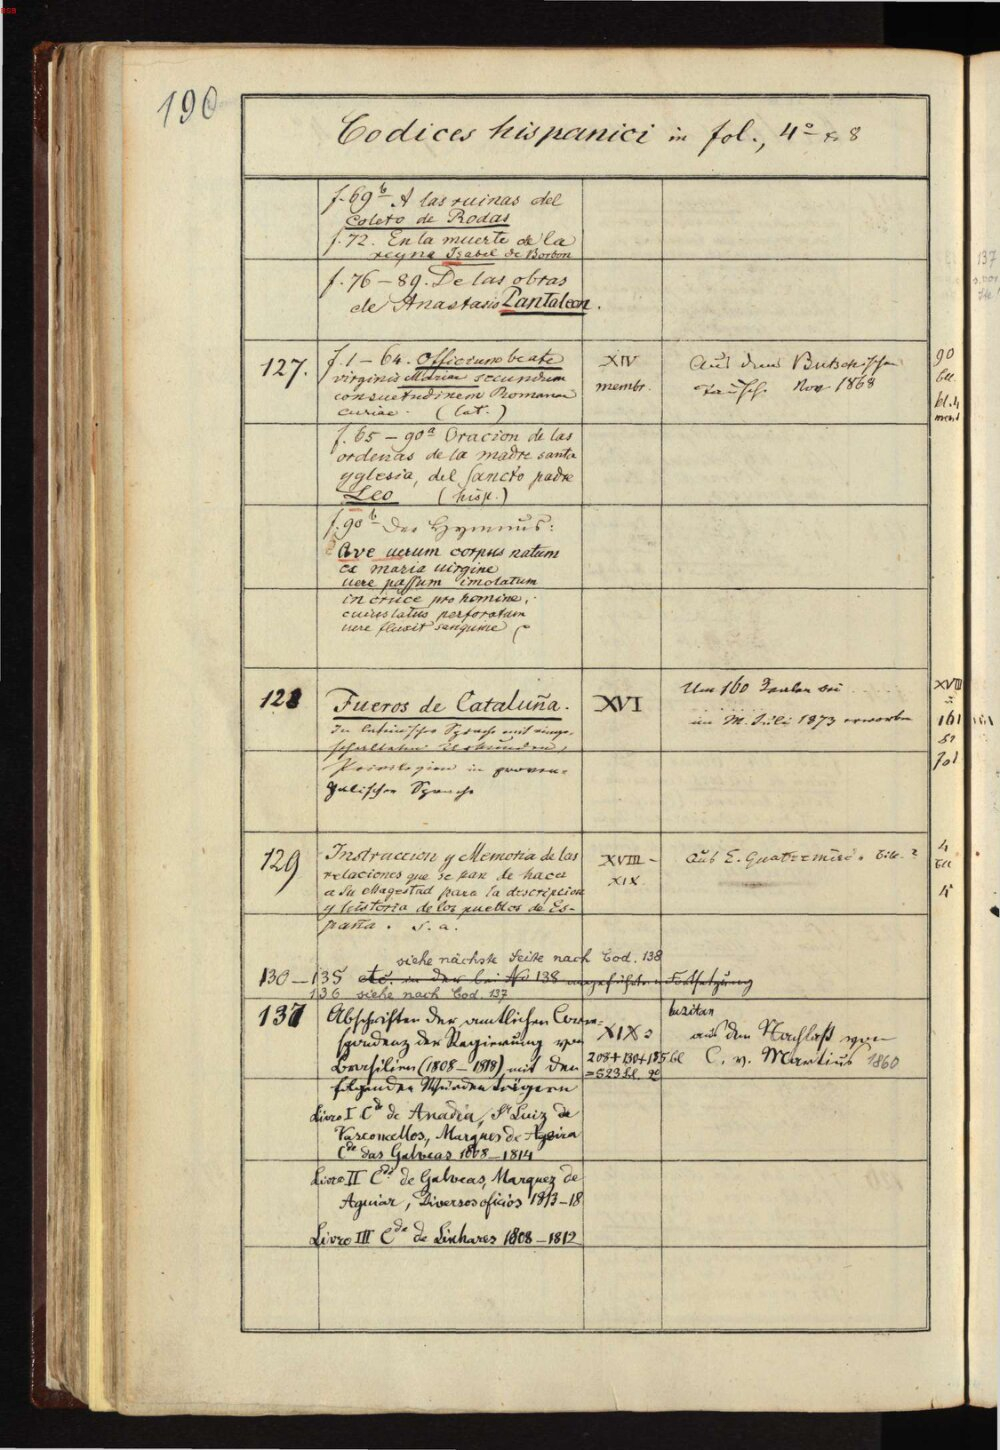 190
Codices hispanici in fol., 4º & 8
f. 69b A las ruinas del
Coleto de Rodas
f. 72. En la muerte de la
reyna Isabel de Borbon
f. 76 – 89. De las obras
de Anastasio Pantaleon.
127.
f. 1 – 64. Officium beate
virginis Mariae secundum
consuetudinem Romanae
curiae. (lat.)
XIV
membr.
Aus dem Butschischen
Tausch. Nov. 1868
90
bll.
kl. 4
f. 65 – 90a Oracion de las
ordenas de la madre santa
yglesia, del sancto padre
Leo (hisp.)
f. 90b Der Hymnus:
Ave uerum corpus natum
ex maria uirgine
uere passum imolatum
in cruce pro homine,
cuius latus perforatum
uere fluxit sanguine
128
Fueros de Cataluña.
In lateinischer Sprache mit einge-
schalteten Urkunden,
Privilegien in proven-
zalischer Sprache
XVI
Um 160
im M. Juli 1873 erworben
XVIII
u.
161
Bl
fol
129
Instruccion y Memoria de las
relaciones que se han de hacer
a Su Magestad para la descripcion
y historia de los pueblos de Es-
paña. s. a.
XVIII –
XIX.
Aus E. Quatremère's Bib. ?
4
bll
4º
siehe nächste Seite nach Cod. 138
130 – 135 etc. in der bei No 138 angeführten Fortsetzung
136 siehe nach Cod. 137
137
Abschriften der amtlichen Corre-
spondenz der Regierung von
Brasilien (1808 – 1818), mit den
folgenden Würdenträgern
XIX
208 + 130 + 185 bl
= 523 bl. 2º
lusitan
aus dem Nachlaß von
C. v. Martius 1860
Livro I Cde de Anadia, Sr Luiz de
Vasconcellos, Marques de Aguiar
Cde das Galveas 1808 – 1814
Livro II Cde de Galveas, Marquez de
Aguiar, Diversos oficios 1813 – 18
Livro III Cde de Linhares 1808 – 1812
137